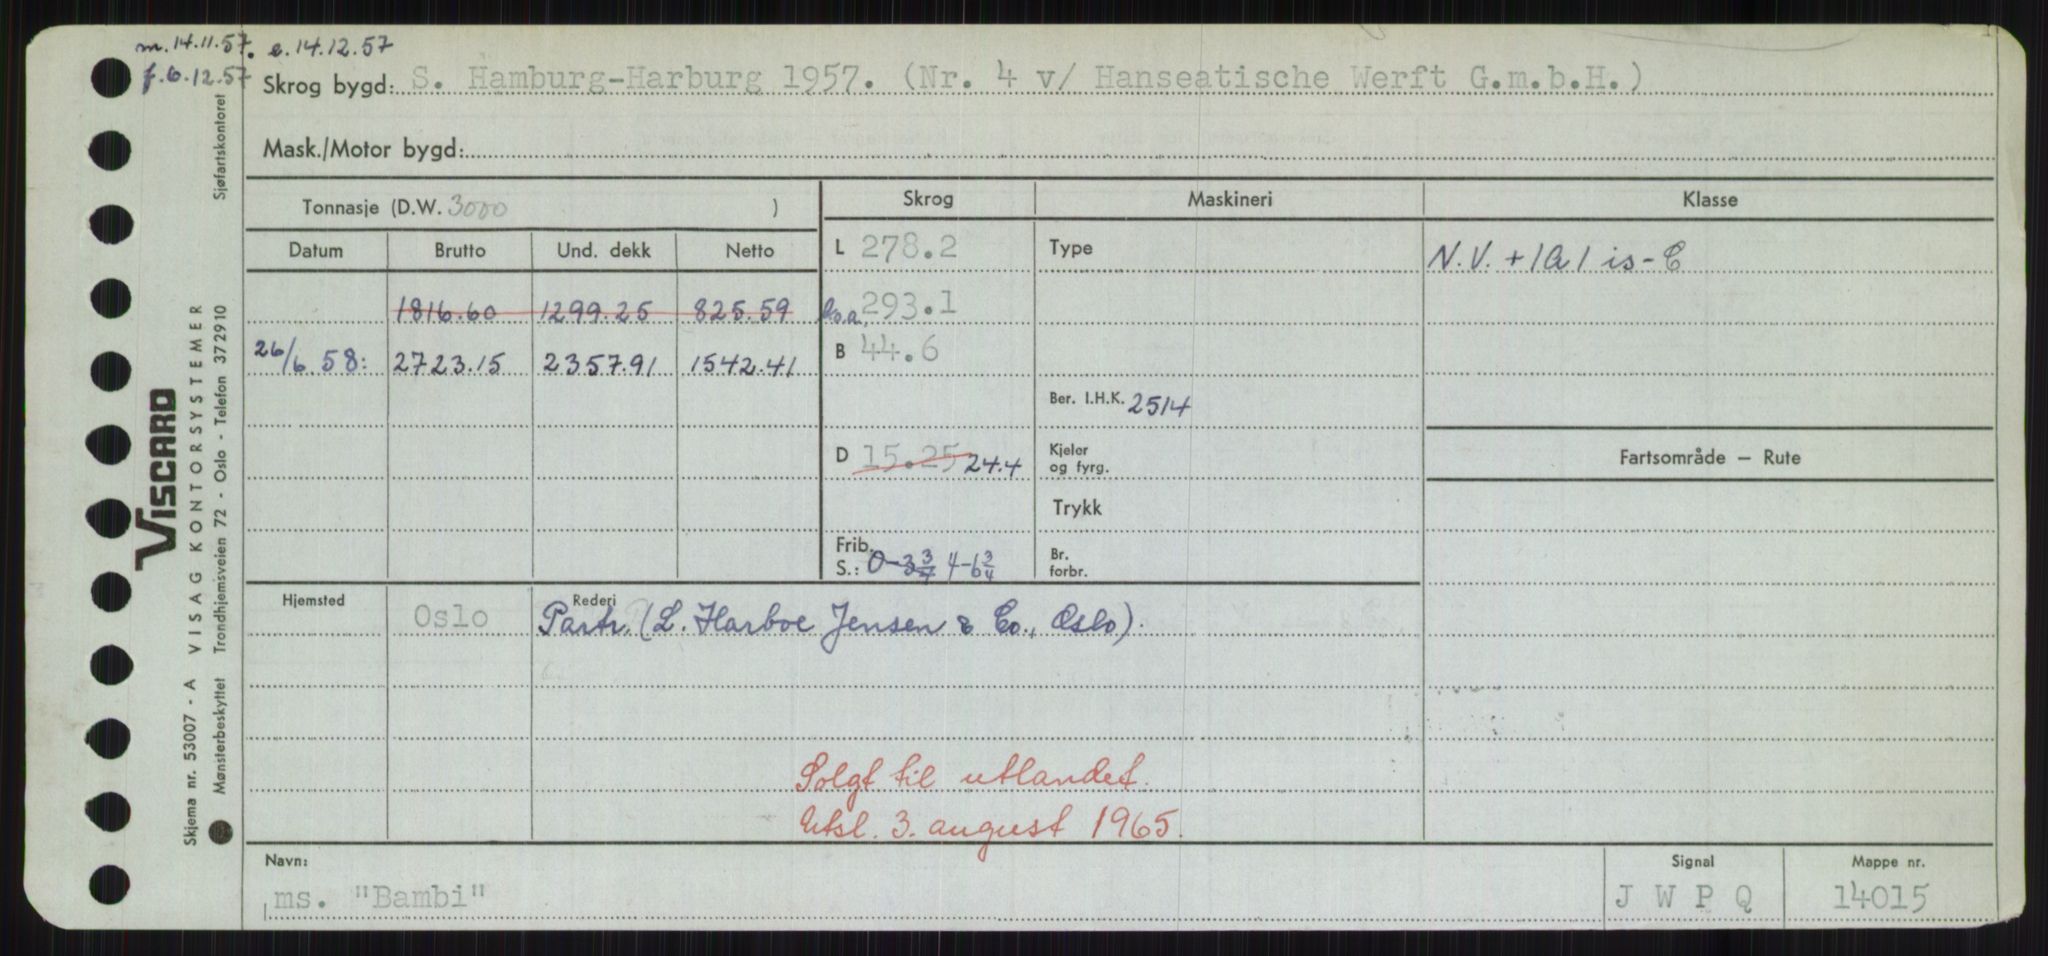 m. 14.11.57. e. 14.12.57
f. 6.12.57
Skrog bygd: S. Hamburg-Harburg 1957. (Nr. 4 v/ Hanseatische Werft G.m.b.H.)
Mask./Motor bygd:
Tonnasje (D.W. 3000 )
Skrog Maskineri Klasse
Datum Brutto Und. dekk Netto
L 278.2 Type N.V. + 1A1 is-C
1816.60 1299.25 825.59 l.o.a. 293.1
26/6 58: 2723.15 2357.91 1542.41 B 44.6
Ber. I.H.K. 2514
D 15.25 24.4 Kjeler og fyrg.
Fartsområde — Rute
Trykk
Frib. S.: 0-3 3/4 4-6 3/4 Br. forbr.
Hjemsted Oslo Rederi Partr. (L. Harboe Jensen & Co., Oslo).
Solgt til utlandet.
Utsl. 3. august 1965.
Navn: Signal Mappe nr.
ms. "Bambi" J W P Q 14015
VISCARD
Skjema nr. 53007 - A VISAG KONTORSYSTEMER
Mønsterbeskyttet Trondhjemsveien 72 - Oslo - Telefon 372910 Sjøfartskontoret